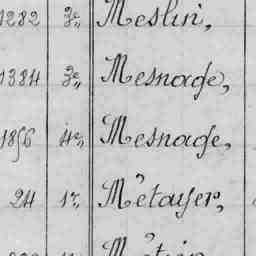 1282 3e, Meslin,
1384 3e, Mesnage,
1856 4e, Mesnage,
24 1r, Métayer,